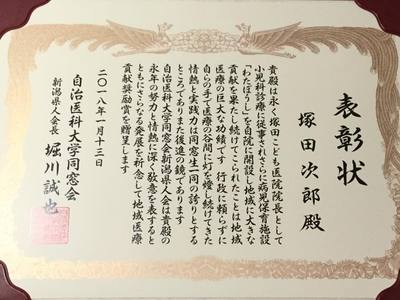 表彰状
塚田次郎殿
貴殿は永く塚田こども医院院長として
小児科診療に従事されさらに病児保育施設
「わたぼうし」を自院に開設し地域に大きな
貢献を果たし続けてこられたことは地域
医療の巨大な功績です 行政に頼らずに
自らの手で医療の谷間に灯を燈し続けてきた
情熱と実践力は同窓生一同の誇りとする
ところでありまた後進の鏡であります
自治医科大学同窓会新潟県人会は貴殿の
永年の努力と情熱に深く敬意を表すると
ともにさらなる発展を祈念して地域医療
貢献奨励賞を贈呈します
二〇一八年一月十三日
自治医科大学同窓会
新潟県人会長 堀川誠也